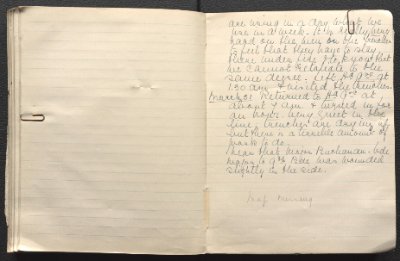 are using in a day what we
use in a week. It is really very
hard on the men in the trenches
to feel that they have to stay
there under fire & to know that
we cannot retaliate to the
same degree. Left Hd Qrs at
1.30 am & visited the trenches.
March 31 Returned to Hd Qrs at
about 4 am & turned in for
an hour. Very quiet in the
line; trenches are drying up
but there is a terrible amount of
work to do.
hear that Nixon Buchanan Bde
Major to 9th Bde was wounded
slightly in the side.
Maj.